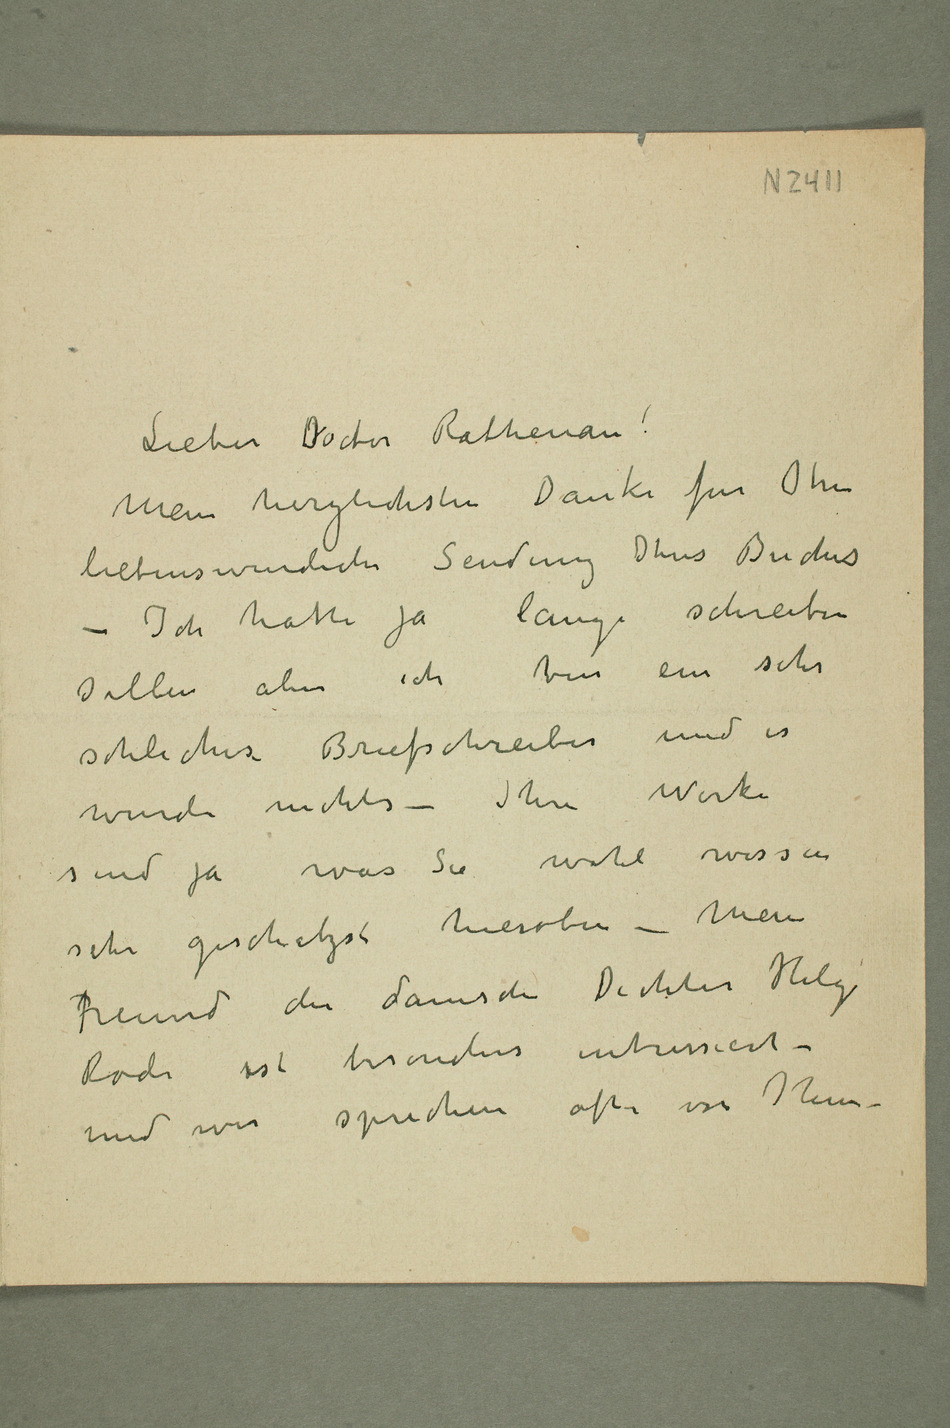 N 2411
Lieber Doctor Rathenau!
Mein herzlichsten Danke fur Ihre
liebenswurdiche Sendung Ihres Buches
– Ich hatte ja lange schreiben
sollen aber ich bin ein sehr
schlechter Briefschreiber und es
wurde nichts – Ihre Werke
sind ja was Sie wohl wissen
sehr geschatzst hieroben – Mein
Freund der danische Dichter Helge
Rode ist besonders intressiert –
und wir sprechen ofte von Ihnen –